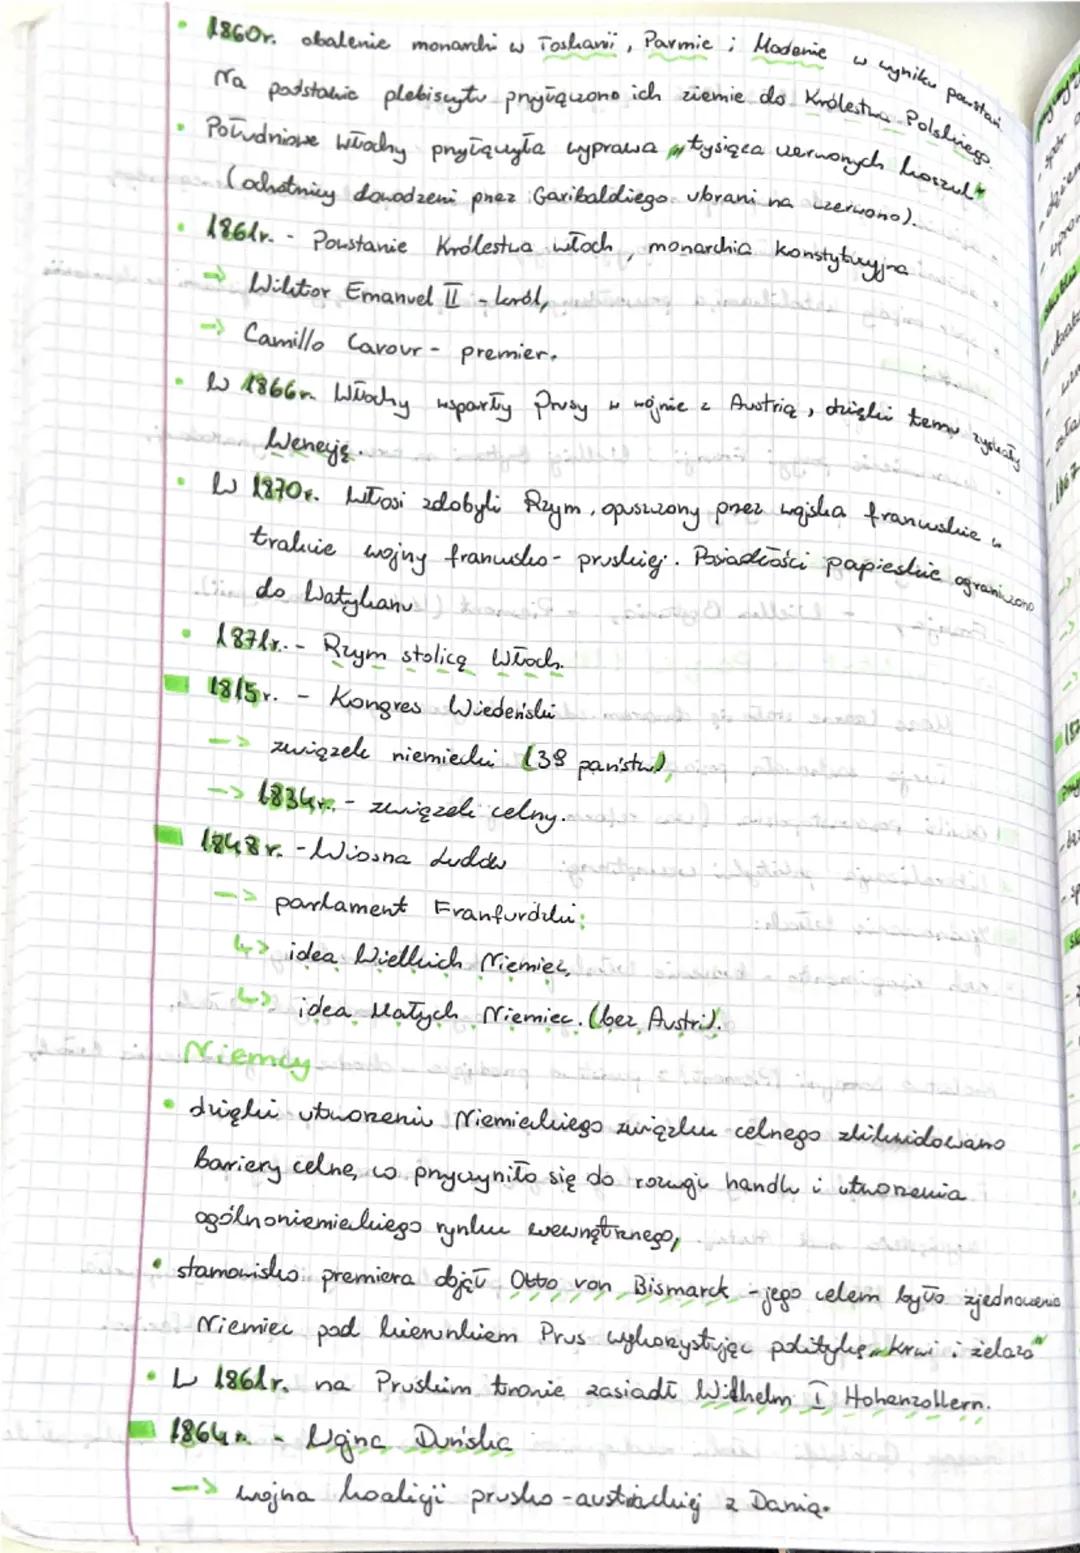 • 1860r. obalenie monarchi w Toskanii, Parmie i Modenie w wyniku powstań.
Na podstawie plebiscytu przyłączono ich ziemie do Królestwa Polskiego.
• Południowe Włochy przyłączyła wyprawa „tysiąca czerwonych koszul"
(ochotnicy dowodzeni przez Garibaldiego ubrani na czerwono).
• 1861r. - Powstanie Królestwa Włoch, monarchia konstytucyjna
→ Wiktor Emanuel II - król,
→ Camillo Cavour - premier.
• W 1866r. Włochy wsparły Prusy w wojnie z Austrią, dzięki temu zyskały
Wenecję.
• W 1870r. Włosi zdobyli Rzym, opuszczony przez wojska francuskie w
trakcie wojny francusko-pruskiej. Posiadłości papieskie ograniczono
do Watykanu
• 1871r. - Rzym stolicą Włoch.
1815r. - Kongres Wiedeński
-> związek niemiecki (39 państw)
-> 1834r. - związek celny.
1848r. - Wiosna Ludów
-> parlament Franfurdzki:
↳ idea Wielkich Niemiec,
↳ idea Małych Niemiec. (bez Austri).
Niemcy
• dzięki utworzeniu Niemieckiego związku celnego zlikwidowano
bariery celne, co przyczyniło się do rozwoju handlu i utworzenia
ogólnoniemieckiego rynku wewnętrznego,
• stanowisko premiera objął Otto von Bismarck - jego celem było zjednoczenie
Niemiec pod kierunkiem Prus wykorzystując politykę „krwi i żelaza"
• W 1861r. na Pruskim tronie zasiadł Wilhelm I Hohenzollern.
1864r. - Wojna Duńska
-> wojna koalicji prusko-austriackiej z Danią.